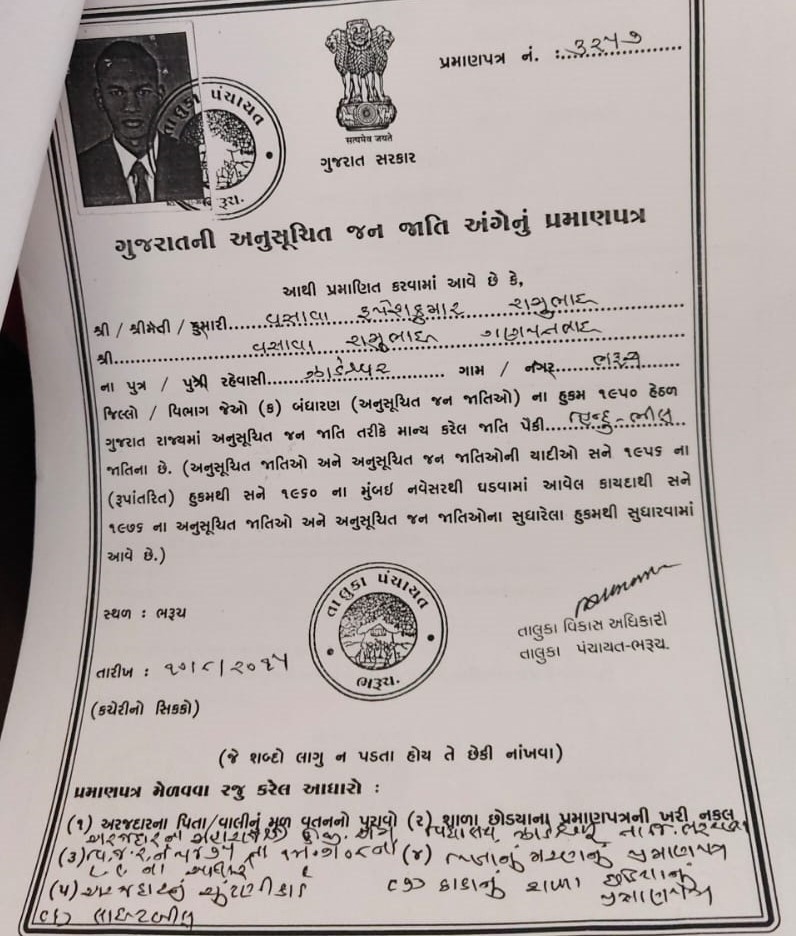 પ્રમાણપત્ર નં. : ૩૨૫૭
सत्यमेव जयते
ગુજરાત સરકાર
તાલુકા પંચાયત
ભરૂચ.
ગુજરાતની અનુસૂચિત જન જાતિ અંગેનું પ્રમાણપત્ર
આથી પ્રમાણિત કરવામાં આવે છે કે,
શ્રી / શ્રીમતી / કુમારી વસાવા રાજુભાઇ
શ્રી વસાવા રાજુભાઇ ગણપતભાઇ
ના પુત્ર / પુત્રી રહેવાસી ઝાડેશ્વર ગામ / નગર ભરૂચ
જિલ્લો / વિભાગ જેઓ (ક) બંધારણ (અનુસૂચિત જન જાતિઓ) ના હુકમ ૧૯૫૦ હેઠળ
ગુજરાત રાજ્યમાં અનુસૂચિત જન જાતિ તરીકે માન્ય કરેલ જાતિ પૈકી હિન્દુ-ભીલ
જાતિના છે. (અનુસૂચિત જાતિઓ અને અનુસૂચિત જન જાતિઓની યાદીઓ સને ૧૯૫૬ ના
(રૂપાંતરિત) હુકમથી સને ૧૯૬૦ ના મુંબઈ નવેસરથી ઘડવામાં આવેલ કાયદાથી સને
૧૯૭૬ ના અનુસૂચિત જાતિઓ અને અનુસૂચિત જન જાતિઓના સુધારેલા હુકમથી સુધારવામાં
આવે છે.)
તાલુકા પંચાયત
ભરૂચ.
સ્થળ : ભરૂચ
તાલુકા વિકાસ અધિકારી
તાલુકા પંચાયત-ભરૂચ.
તારીખ :
(કચેરીનો સિક્કો)
(જે શબ્દો લાગુ ન પડતા હોય તે છેકી નાંખવા)
પ્રમાણપત્ર મેળવવા રજુ કરેલ આધારો :
(૧) અરજદારના પિતા/વાલીનું મૂળ વતનનો પુરાવો (૨) શાળા છોડયાના પ્રમાણપત્રની ખરી નકલ
(૩) (૪) મરણનું પ્રમાણપત્ર
(૫) અરજદારનું ચુંટણીકાર્ડ (૭) કાકાનું શાળા છોડયાનું
પ્રમાણપત્ર
(૬) લાઇટબીલ